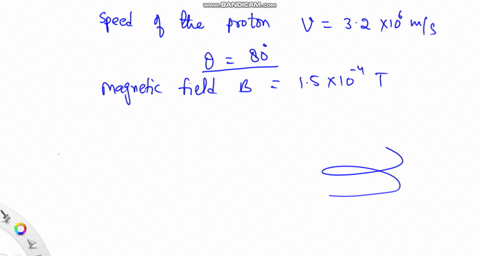 WWW.BANDICAM.COM
Speed of the proton V = 3.2 × 10⁶ m/s
θ = 80°
magnetic field B = 1.5 × 10⁻⁴ T